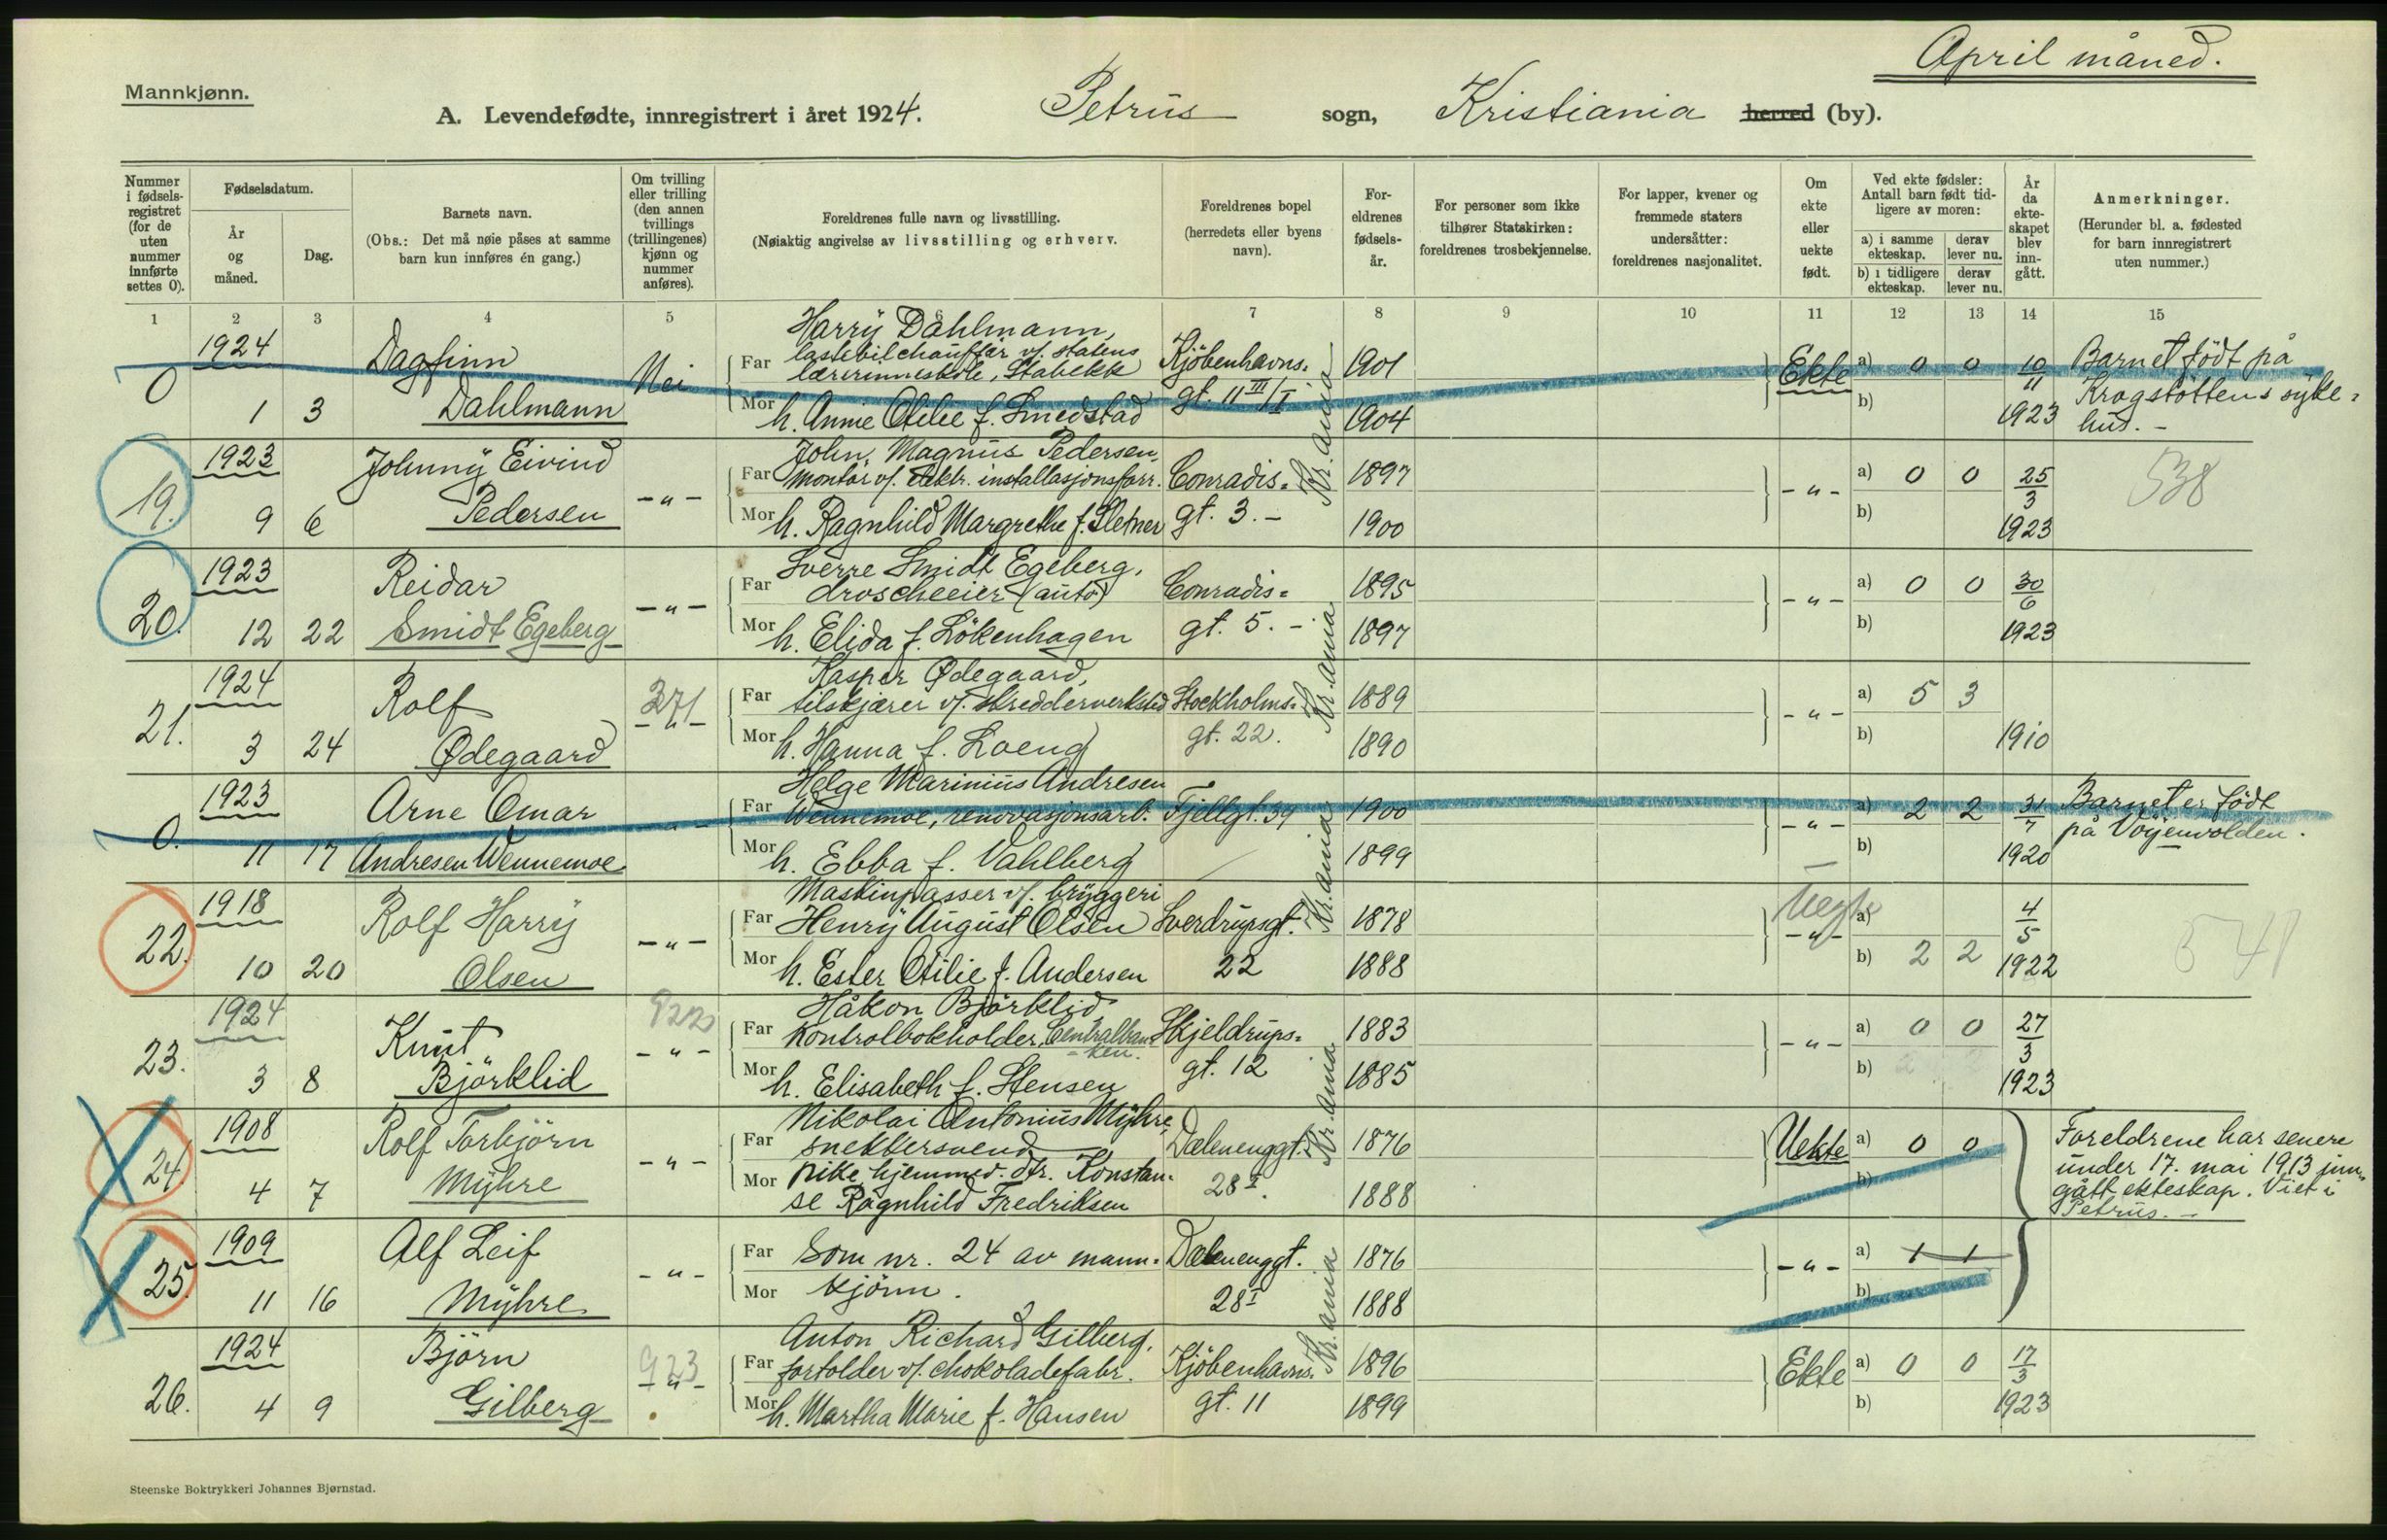 April måned.
Mannkjønn.
A. Levendefødte, innregistrert i året 1924. Petrus sogn, Kristiania herred (by).
Nummer i fødsels-registret (for de uten nummer innførte settes 0).
Fødselsdatum.
År og måned.
Dag.
Barnets navn.
(Obs.: Det må nøie påses at samme barn kun innføres én gang.)
Om tvilling eller trilling (den annen tvillings (trillingenes) kjønn og nummer anføres).
Foreldrenes fulle navn og livsstilling.
(Nøiaktig angivelse av livsstilling og erhverv.
Foreldrenes bopel (herredets eller byens navn).
For-eldrenes fødsels-år.
For personer som ikke tilhører Statskirken: foreldrenes trosbekjennelse.
For lapper, kvener og fremmede staters undersåtter: foreldrenes nasjonalitet.
Om ekte eller uekte født.
Ved ekte fødsler: Antall barn født tid-ligere av moren:
a) i samme ekteskap. derav lever nu.
b) i tidligere ekteskap. derav lever nu.
År da ekte-skapet blev inn-gått.
Anmerkninger.
(Herunder bl. a. fødested for barn innregistrert uten nummer.)
1 2 3 4 5 6 7 8 9 10 11 12 13 14 15
Harry Dahlmann,
1924 Dagfinn Nei Far lastebilchauffør v/. statens Kjöbenhavns= 1901 Ekte a) 0 0 10/11 Barnet födt på
0 lærerinneskole, Stabekk Krogstöttens syke=
1 3 Dahlmann Mor h. Annie Otelie f. Smedstad gt. 11 III/I Kr.ania 1904 b) 1923 hus. -
John Magnus Pedersen,
1923 Johnny Eivind Far montör v/. elektr. installasjonsforr. Conradis= 1897 a) 0 0 25/3 538
19. -"- -"-
9 6 Pedersen Mor h. Ragnhild Margrethe f. Sletner gt. 3. - 1900 b) 1923
Sverre Smidt Egeberg,
1923 Reidar Far droscheeier (auto) Conradis= 1895 a) 0 0 30/6
20. -"- -"-
12 22 Smidt Egeberg Mor h. Elida f. Lökenhagen gt. 5. - Kr.ania 1897 b) 1923
Kasper Ødegaard,
1924 Rolf 371 Far tilskjærer v/. skredderverksted Stockholms= 1889 a) 5 3
21. -"- -"-
3 24 Ødegaard Mor h. Hanna f. Loeng gt. 22. 1890 b) 1910
Helge Marinius Andresen
1923 Arne Omar Far Wennemoe, renovasjonsarb. Fjellgt. 39 1900 a) 2 2 31/7 Barnet er födt
0. -"- -"- på Vöyenvolden.
11 17 Andresen Wennemoe Mor h. Ebba f. Vahlberg Kr.ania 1899 b) 1920
Maskinpasser v/. bryggeri
1918 Rolf Harry Far Henry August Olsen Sverdrupsgt. 1878 Uegte a) 4/5
22. -"- -"- 541
10 20 Olsen Mor h. Ester Otilie f. Andersen 22 1888 b) 2 2 1922
Håkon Björklid,
1924 Knut 922 Far Kontrolbokholder, Centralban= Skjeldrups= 1883 a) 0 0 27/3
23. -"- ken. -"-
3 8 Björklid Mor h. Elisabeth f. Stensen gt. 12 Kr.ania 1885 b) 1923
Nikolai Antonius Myhre,
1908 Rolf Torbjörn Far snekkersvend Dælenenggt. 1876 Uekte a) 0 0 Foreldrene har senere
24. -"- Mor pike, hjemmev. dtr. Konstan= under 17. mai 1913 inn=
4 7 Myhre se Ragnhild Fredriksen 28 I. 1888 b) gått ekteskap. Viet i
Petrus. -
1909 Alf Leif Far Som nr. 24 av mann= Dælenenggt. 1876 a) 1 1
25. -"- -"-
11 16 Myhre Mor kjönn. 28 I Kr.ania 1888 b)
Anton Richard Gilberg,
1924 Björn 923 Far fortolder v/. chokoladefabr. Kjöbenhavns= 1896 Ekte a) 0 0 17/3
26. -"-
4 9 Gilberg Mor h. Martha Marie f. Hansen gt. 11 1899 b) 1923
Steenske Boktrykkeri Johannes Bjørnstad.